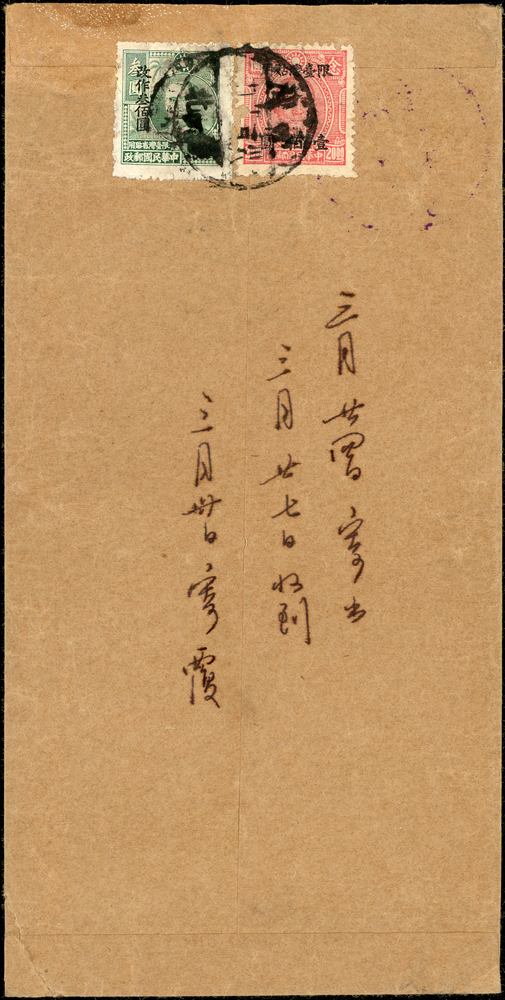 限臺灣
20.00
改作叁佰圓
限臺灣省貼用
中華民國郵政
三月廿四日寄出
三月廿七日收到
三月卅日寄覆